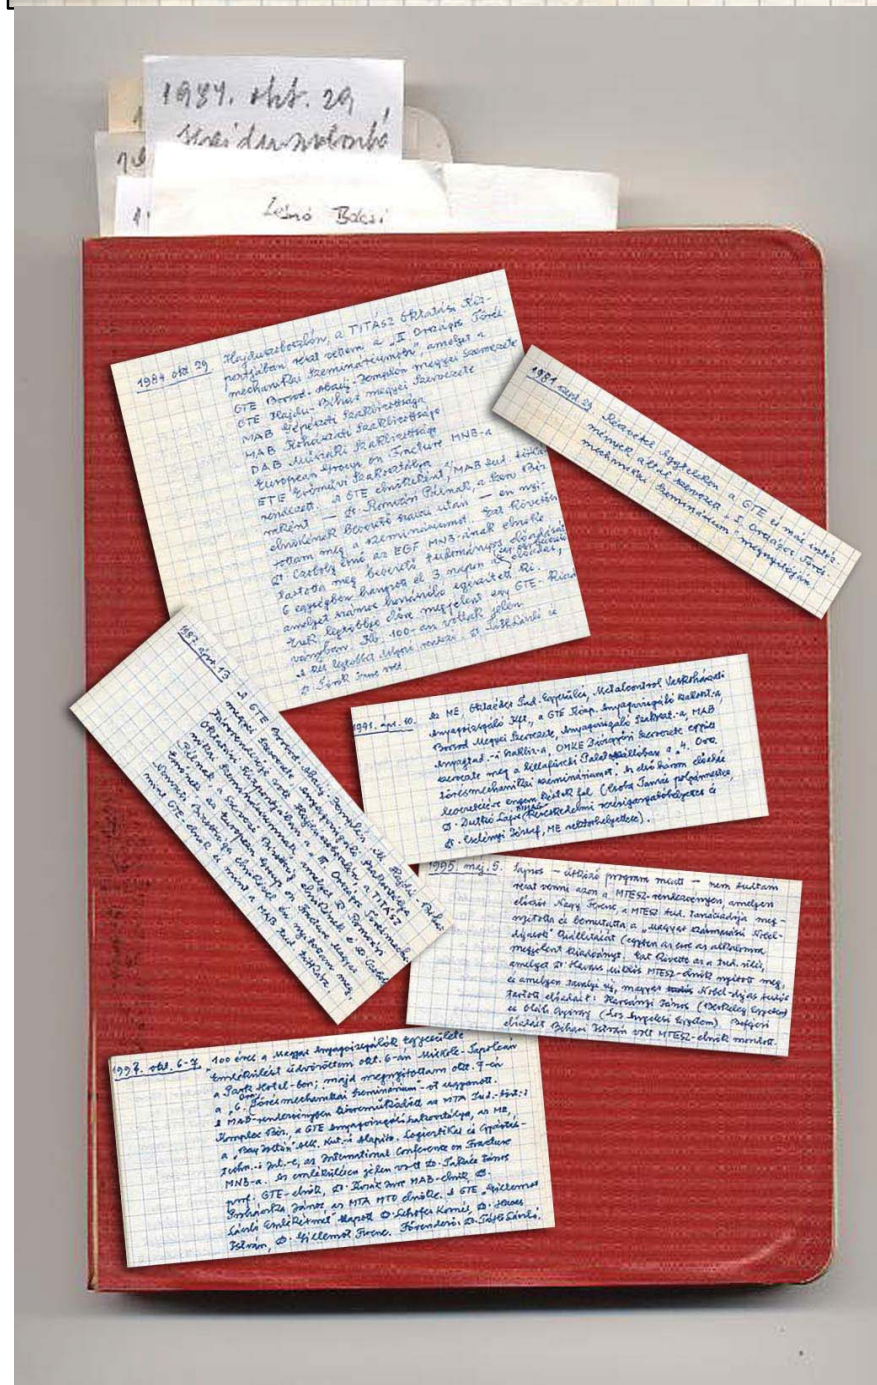 1984. okt. 29
Hajdu
Lászó Bácsi
1984 okt 29 Hajduszoboszlón, a TITÁSZ Oktatási Köz-
pontjában részt vettem a „II Országos Törés-
mechanikai Szemináriumon", amelyet a
GTE Borsod-Abauj-Zemplén megyei Szervezete
GTE Hajdu-Bihar megyei Szervezete
MAB Gépészeti Szakbizottsága
MAB Kohászati Szakbizottsága
DAB Műszaki Szakbizottsága
European Group on Fracture MNB-a
ETE Erőművi Szakosztálya
rendezett. A GTE elnökeként, MAB tud. titká-
raként — Dr. Romvári Pálnak, a Szerv. Biz.
elnökének bevezető szavai után — én nyi-
tottam meg a szemináriumot. Ezt követően
Dr. Czoboly Ernő az EGF MNB-ának elnöke
tartotta meg bevezető tudományos előadását
6 egységben hangzott el 3 napon előadás,
amelyet számos hozzászólás egészített ki.
legtöbbje előre megjelent egy GTE-kiad-
ványban. Kb. 100-an voltak jelen.
Dr. Tóth László és
volt.
1981 szept 29 Részvétel Aggteleken a GTE és más intéz-
mények által szervezett „I. Országos Törés-
mechanikai Szeminárium" megnyitóján
1987. ápr. 13 A GTE Borsod-Abauj-Zemplén és Hajdu Bihar
megyei Szervezete anyagvizsgáló szakosztálya
Hajduszoboszlón, a TITÁSZ
Oktatási Központjában a III. Országos Törésmecha-
nikai Szemináriumot, amelyet Dr. Romvári
Pálnak, a Szervező Bizottság elnökének és Dr. Czoboly
Ernőnek az European Group on Fracture magyar
Nemzeti Bizottsága elnökével én nyitottam meg,
mint GTE elnök és mint a MAB tud titkára
1991. ápr. 10. Az ME, Oktatási Tud. Egyesülés, Metalcontrol Vaskohászati
Anyagvizsgáló Kft, a GTE Közp. Anyagvizsgáló Szakoszt.-a
Borsod Megyei Szervezete, Anyagvizsgáló Szakoszt.-a, MAB,
Anyagtud.-i Szakbiz.-a, OMKE Diósgyőri Szervezete együtt
szervezte meg a lillafüredi Palotaszállóban a 4. Orsz
törésmechanikai szemináriumot. Az első három előadás
levezetésére engem kértek fel (Csoba Tamás polgármester,
Dr. Lajos kereskedelmi vezérigazgatóhelyettes és
Dr. Cselényi József, ME rektorhelyettese).
1995. máj. 5. Sajnos — ütköző program miatt — nem tudtam
részt venni azon a MTESZ-rendezvényen, amelyen
előadás Nagy Ferenc, a MTESZ tud. tanácsadója meg-
nyitotta és bemutatta a „Magyar származású Nobel-
díjasok" kiállítását (egyben az erre az alkalomra
megjelent kiadványt. Ezt követte az a tud. ülés,
amelyet Dr. Havass Miklós MTESZ-elnök nyitott meg,
és amelyen tavalyi új, magyar Nobel-díjas tudós
tartott előadást: Harsányi János (Berkeley Egyetem)
és Oláh György (Los Angelesi Egyetem). Befejező
előadást Bihari István volt MTESZ-elnök mondott.
1997. okt. 6-7 „100 éves a Magyar Anyagvizsgálók Egyesülete"
Emlékülést üdvözöltem okt. 6-án Miskolc-Tapolcán
a Park Hotel-ban; majd megnyitottam okt. 7-én
a „6. Orsz. Törésmechanikai Szeminárium"-ot ugyanott.
A MAB-rendezvényben közreműködött az MTA Tud.
Komplex Biz., a GTE anyagvizsgáló szakosztálya, az ME,
a „Bay Zoltán" Alk. Kut.-i Alapítv. Logisztikai és Gyártás-
techn.-i Int.-e, az International Conference on Fracture
MNB-a. Az emlékülésen jelen volt Dr. Takács János
prof. GTE-elnök, Dr. Kozák Imre MAB-elnök, Dr.
Prohászka János az MTA MTO elnöke. A GTE „Gillemot
László Emlékérmét" kapott Dr. Lehofer Kornél, Dr. Havas
István, Dr. Gillemot Ferenc. Főrendező: Dr. Tóth László.